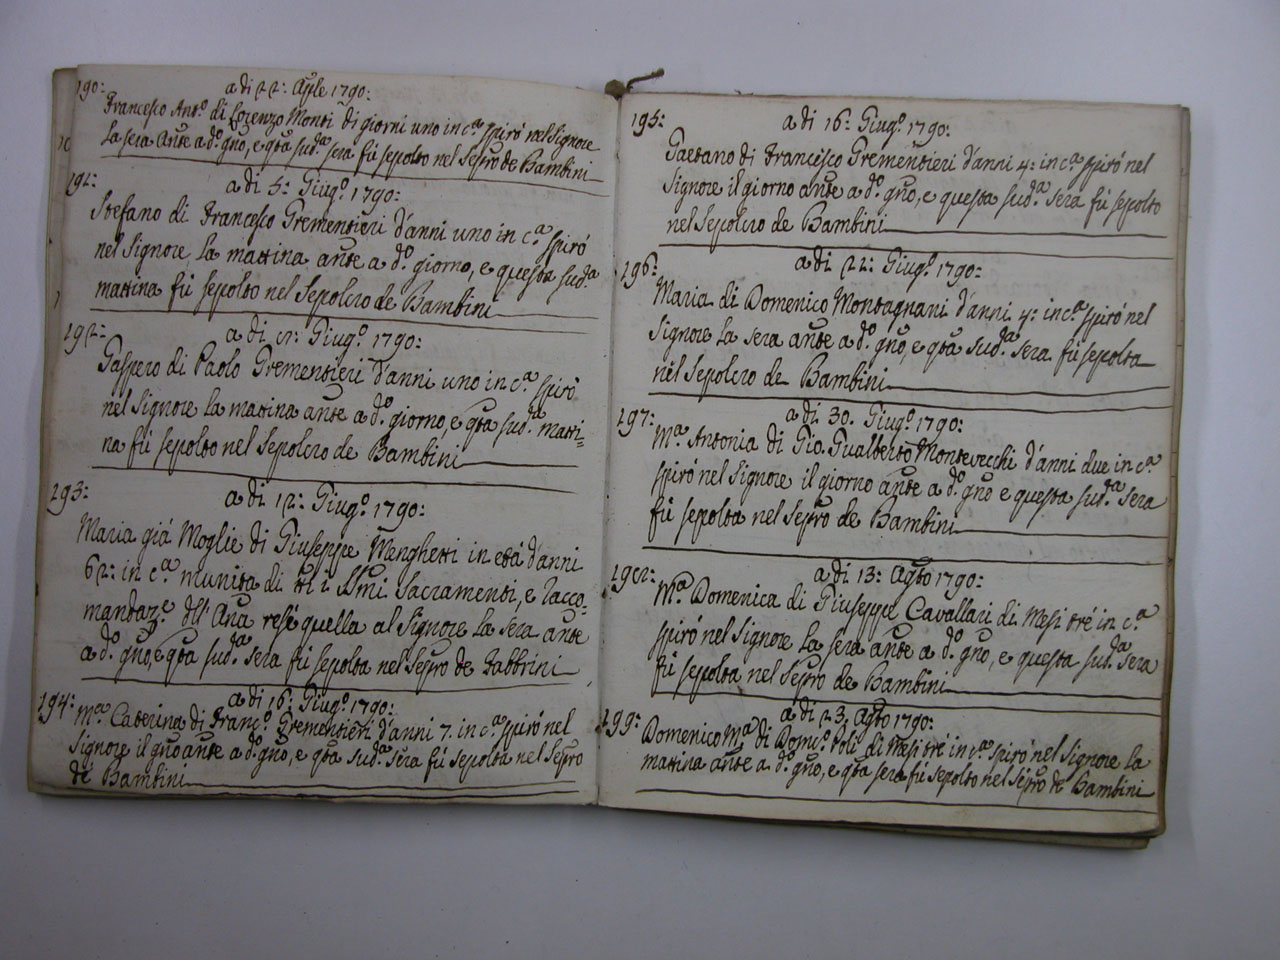 190:
a di 22: Aple 1790:
Francesco Ant.º di Lorenzo Monti di giorni uno in c.ª spirò nel Signore
la sera ante a d.º gño, e qta sud.ª sera fù sepolto nel Sepro de Bambini
191:
a di 5: Giug.º 1790:
Stefano di Francesco Grementieri d'anni uno in c.ª spirò
nel Signore la mattina ante a d.º giorno, e questa sud.ª
mattina fù sepolto nel Sepolcro de Bambini
192:
a di 8: Giug.º 1790:
Gaspero di Paolo Grementieri d'anni uno in c.ª spirò
nel Signore la mattina ante a d.º giorno, e qta sud.ª matti=
na fù sepolto nel Sepolcro de Bambini
193:
a di 12: Giug.º 1790:
Maria già Moglie di Giuseppe Menghetti in età d'anni
62: in c.ª munita di tti i SSmi Sacramenti, e racco-
mandaz.e dell' Aña rese quella al Signore la sera ante
a d.º gño, e qta sud.ª sera fù sepolta nel Sepro de Fabbrini
194:
a di 16: Giug.º 1790:
M.ª Caterina di Franc.º Grementieri d'anni 7. in c.ª spirò nel
Signore il gño ante a d.º gño, e qta sud.ª sera fù sepolta nel Sepro
de Bambini
195:
a di 16: Giug.º 1790:
Gaetano di Francesco Grementieri d'anni 4: in c.ª spirò nel
Signore il giorno ante a d.º gño, e questa sud.ª sera fù sepolto
nel Sepolcro de Bambini
196:
a di 22: Giug.º 1790:
Maria di Domenico Montagnani d'anni 4: in c.ª spirò nel
Signore la sera ante a d.º gño, e qta sud.ª sera fù sepolta
nel Sepolcro de Bambini
197:
a di 30. Giug.º 1790:
M.ª Antonia di Gio. Gualberto Montevecchi d'anni due in c.ª
spirò nel Signore il giorno ante a d.º gño e questa sud.ª sera
fù sepolta nel Sepro de Bambini
198:
a di 13: Agto 1790:
M.ª Domenica di Giuseppe Cavallari di Mesi tré in c.ª
spirò nel Signore la sera ante a d.º gño, e questa sud.ª sera
fù sepolta nel Sepro de Bambini
199:
a di 23. Agto 1790:
Domenico M.ª di Dom.º Poli di Mesi tré in c.ª spirò nel Signore la
mattina ante a d.º gño, e qta sera fù sepolto nel Sepro de Bambini